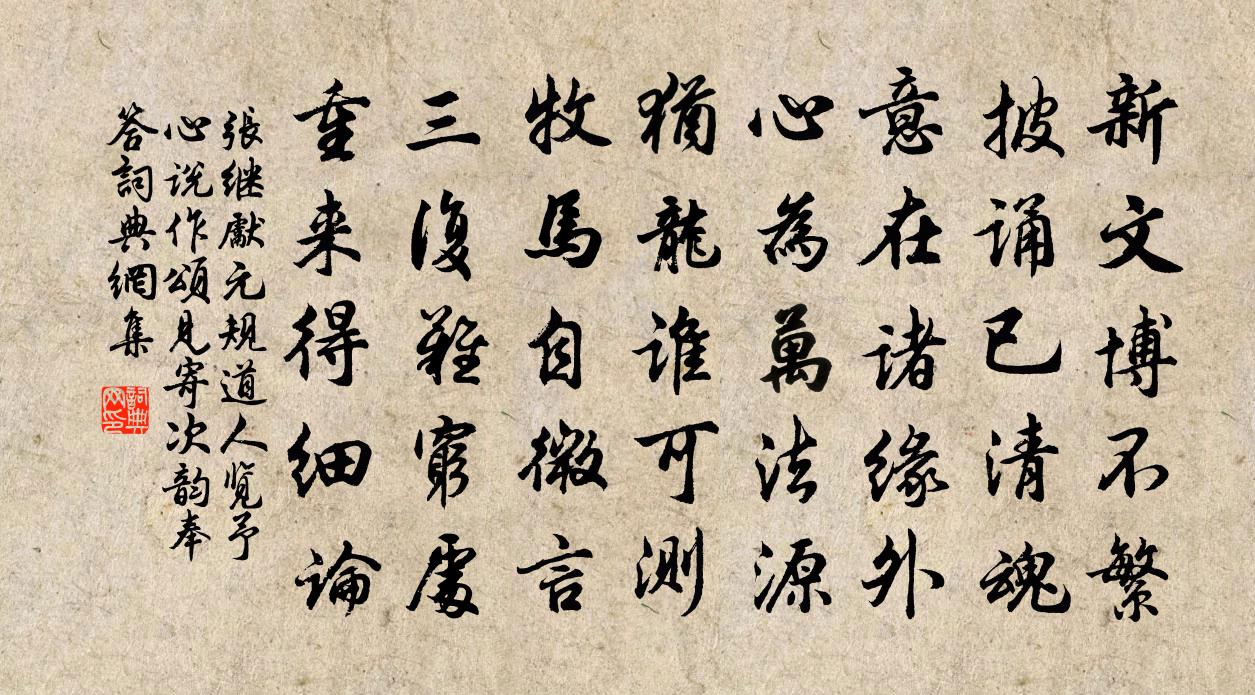 新文博不繁
披诵已清魂
意在诸缘外
心為萬法源
猶龍谁可测
牧馬自微言
三復難窮處
重来得细論
張继獻元规道人览予
心说作頌見寄次韵奉
答詞典網集
詞典
网印